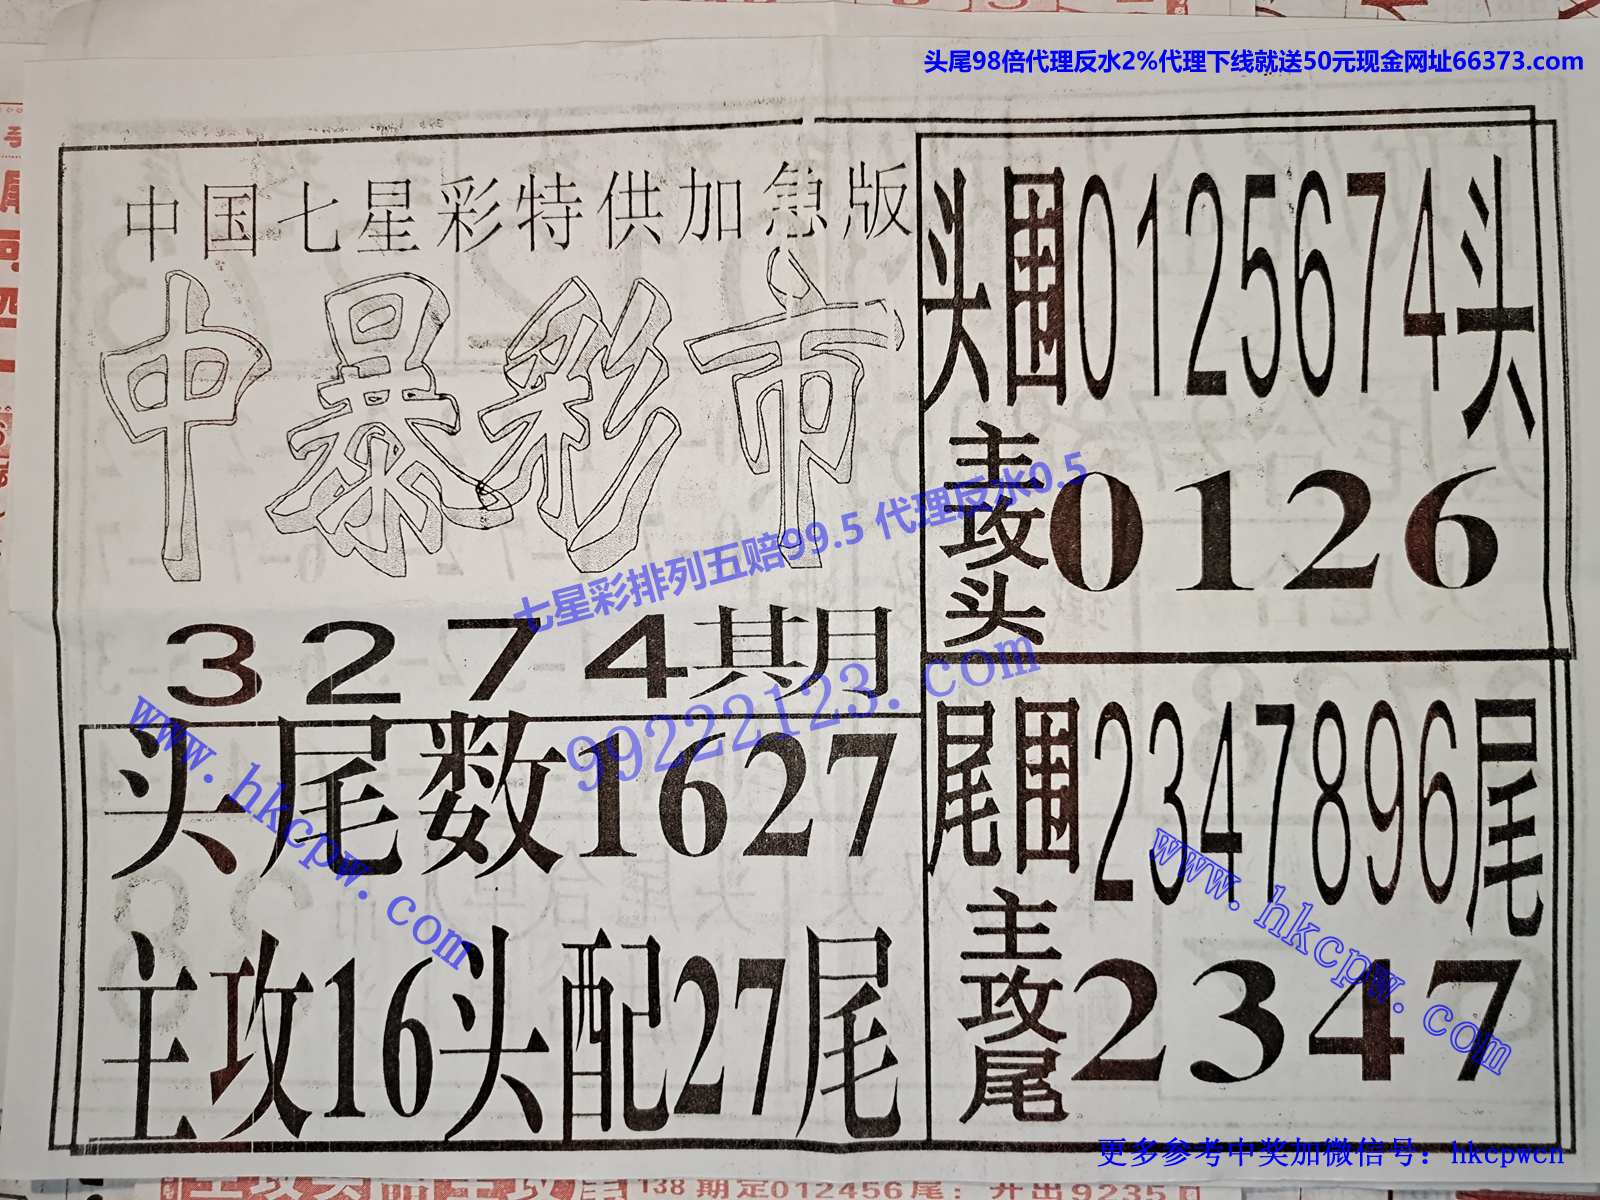 头尾98倍代理反水2%代理下线就送50元现金网址66373.com
中国七星彩特供加急版
中暴彩市
3274期
头尾数1627
主攻16头配27尾
头围0125674头
主攻头0126
尾围2347896尾
主攻尾2347
七星彩排列五赔99.5 代理反水0.5
99222123.com
www.hkcpw.com
www.hkcpw.com
更多参考中奖加微信号：hkcpwcn
138期定012456尾：开出9235